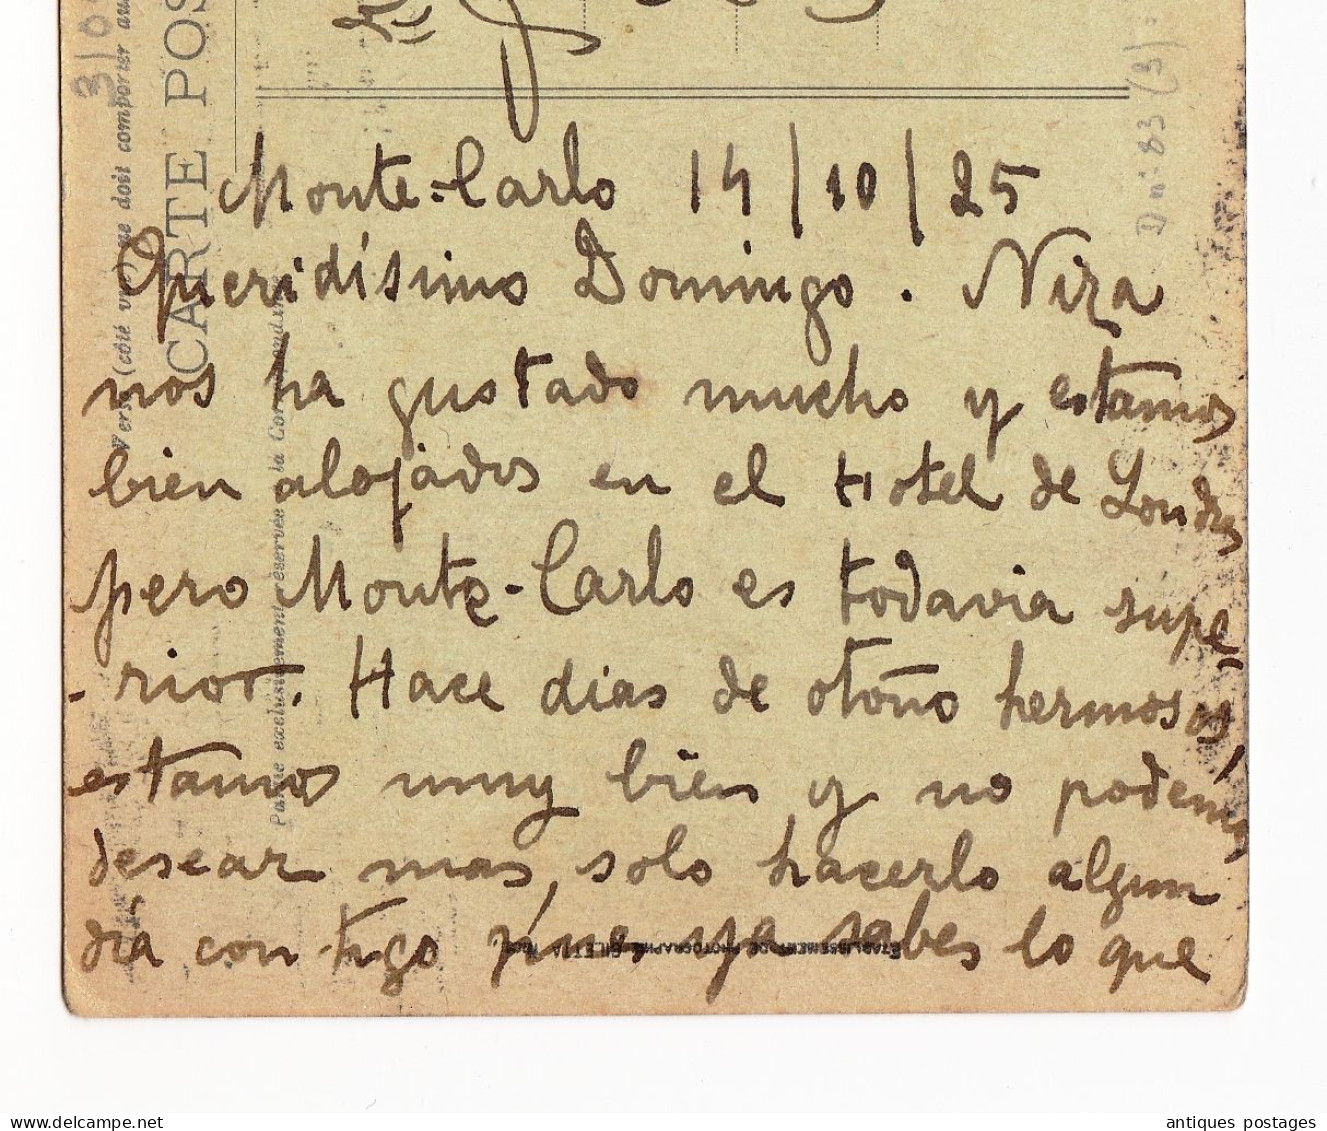 Monte-Carlo 14/10/25
Queridísimo Domingo. Niza
nos ha gustado mucho y estamos
bien alojados en el Hotel de Londres
pero Monte-Carlo es todavia supe-
-rior. Hace dias de otoño hermosos,
estamos muy bien y no podemos
desear mas, solo hacerlo algun
dia contigo pues ya sabes lo que
CARTE POS
(côté vue) ne doit comporter
Partie exclusivement réservée à la Correspondance
ÉTABLISSEMENT DE PHOTOGRAPHIE GILETTA NICE
antiques postages